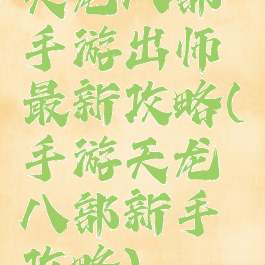 天龙八部
手游出师
最新攻略(
手游天龙
八部新手
攻略)